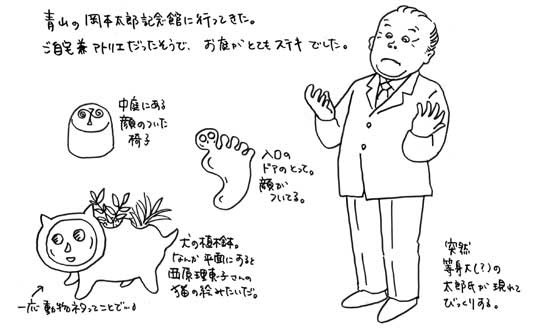 青山の岡本太郎記念館に行ってきた。
ご自宅兼アトリエだったそうで、お庭がとてもステキでした。
中庭にある
顔のついた
椅子
入口の
ドアのとって。
顔が
ついてる。
犬の植木鉢。
なんか平面にすると
西原理恵子さんの
猫の絵みたいだ。
一応動物ネタってことで…
突然
等身大(?)の
太郎氏が現れて
びっくりする。